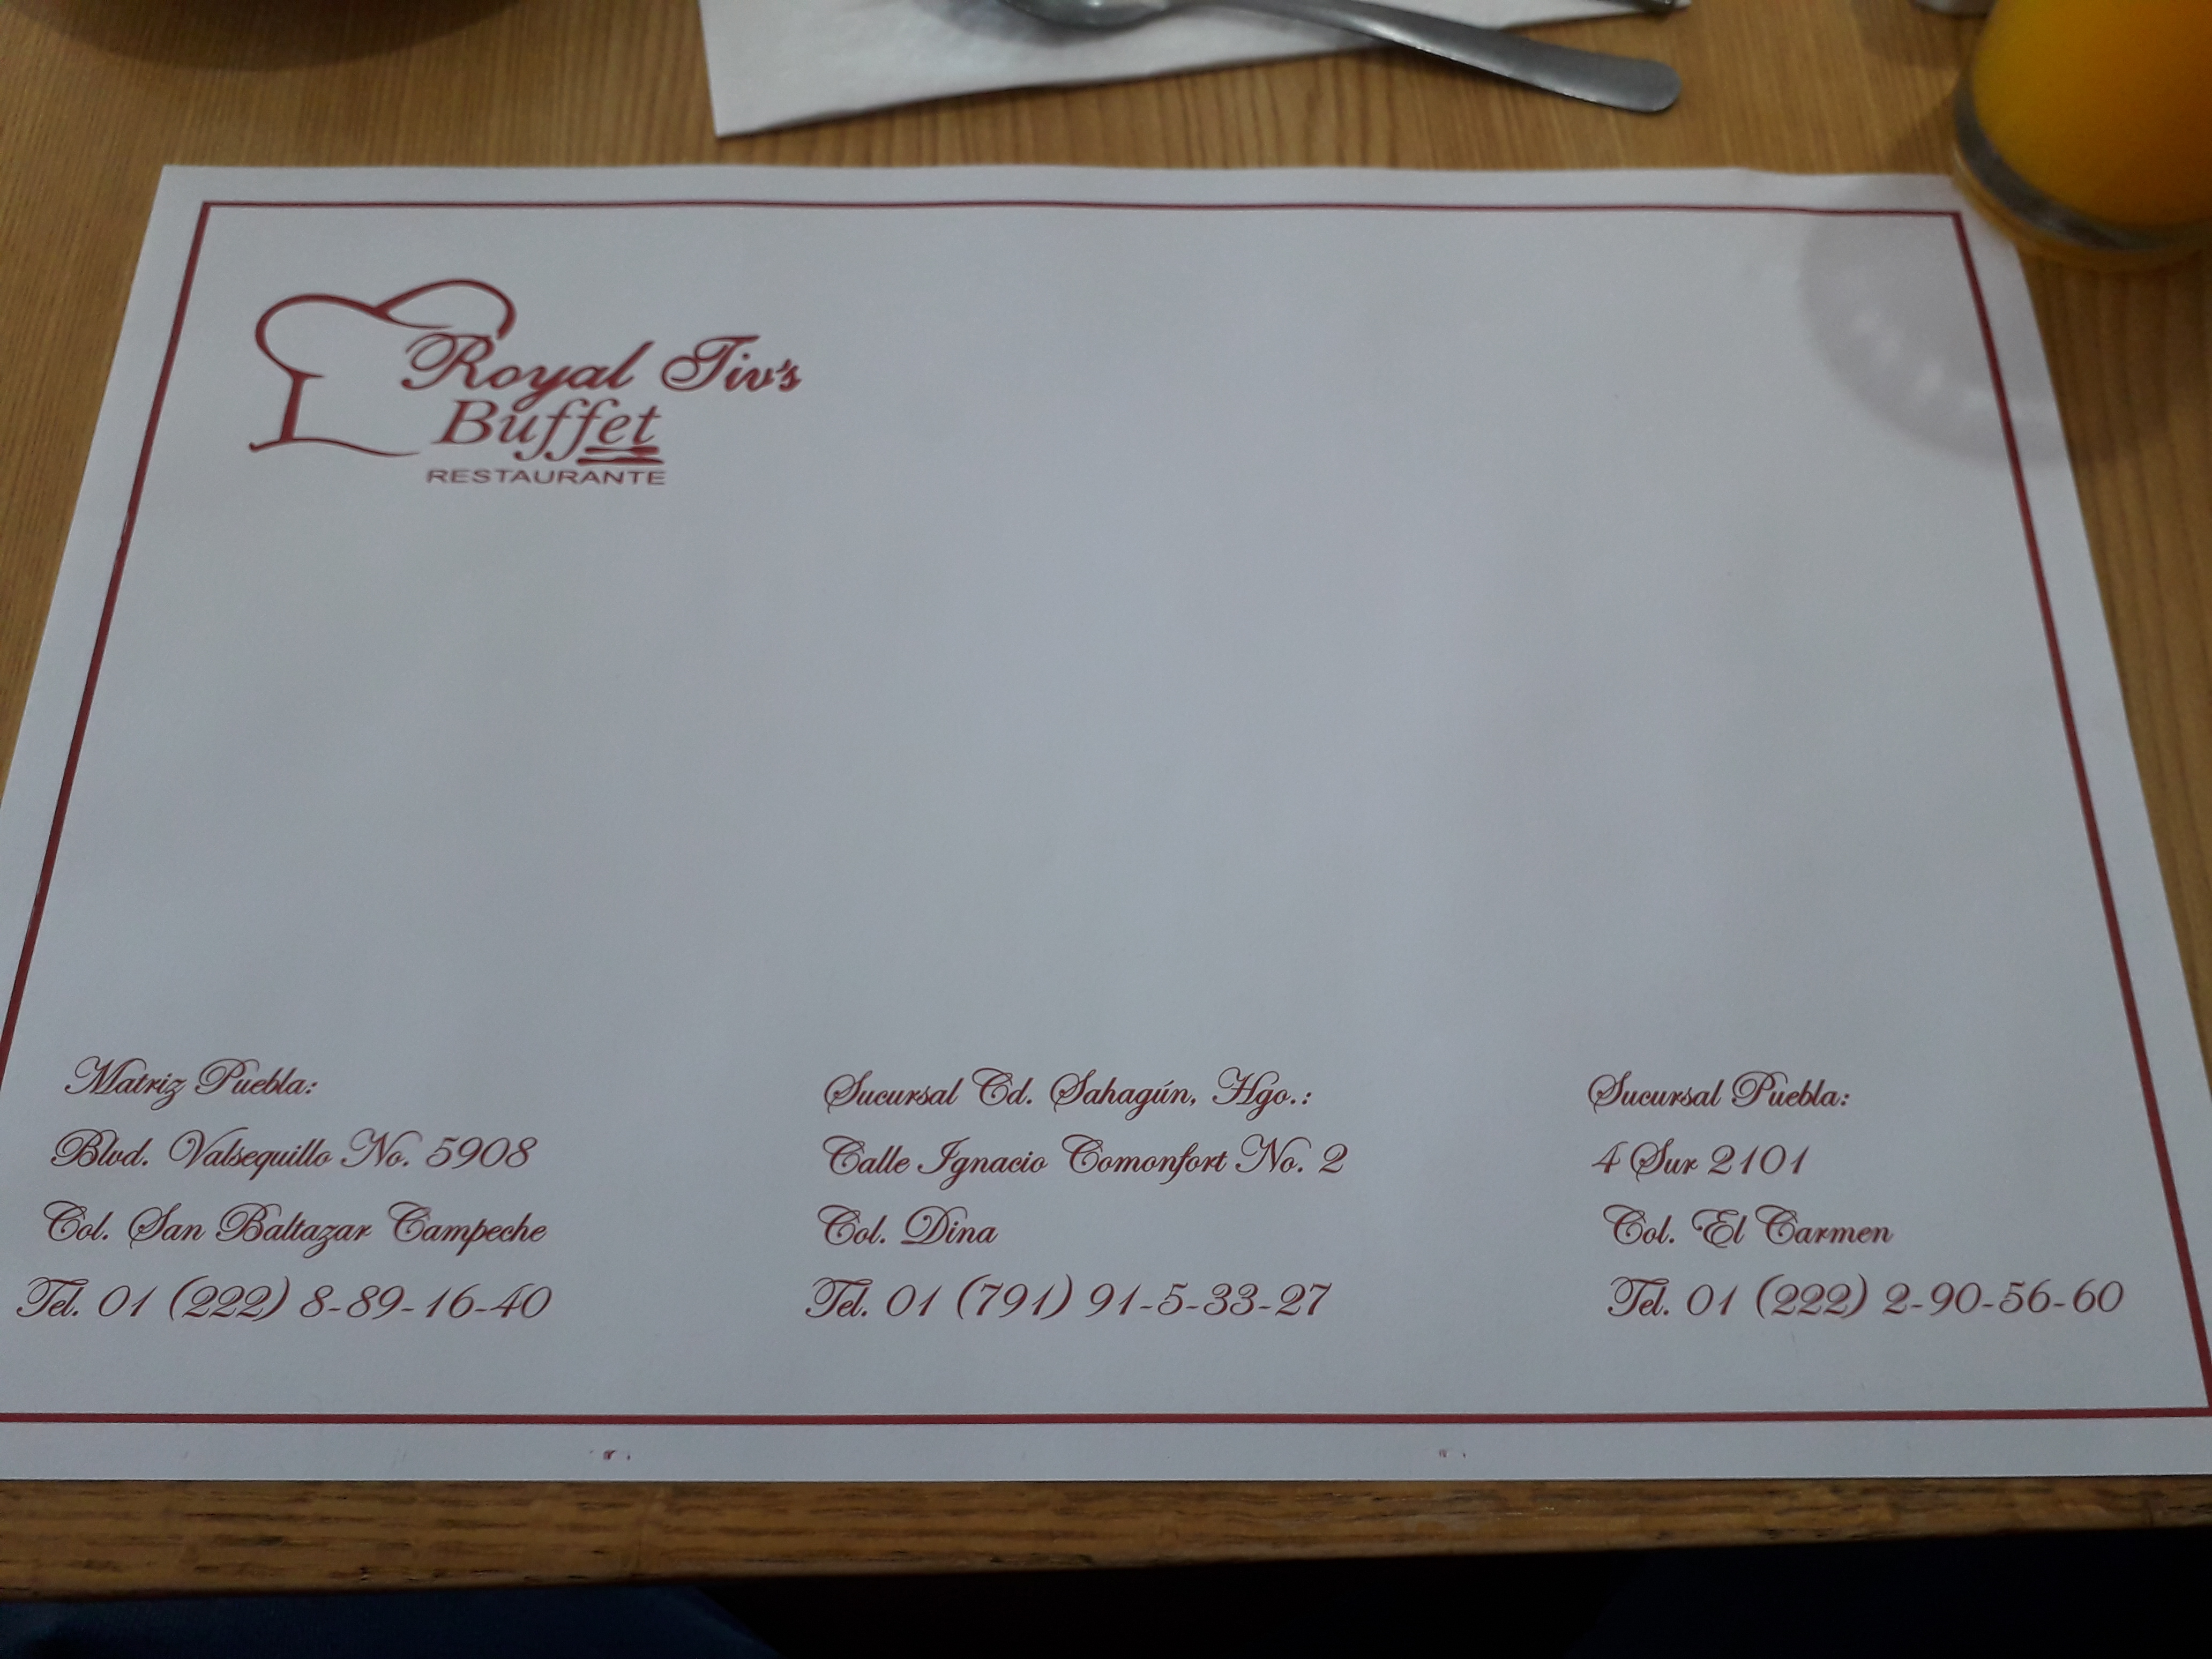 Royal Tiv's
Buffet
RESTAURANTE
Matriz Puebla:
Blvd. Valsequillo No. 5908
Col. San Baltazar Campeche
Tel. 01 (222) 8-89-16-40
Sucursal Cd. Sahagún, Hgo.:
Calle Ignacio Comonfort No. 2
Col. Dina
Tel. 01 (791) 91-5-33-27
Sucursal Puebla:
4 Sur 2101
Col. El Carmen
Tel. 01 (222) 2-90-56-60